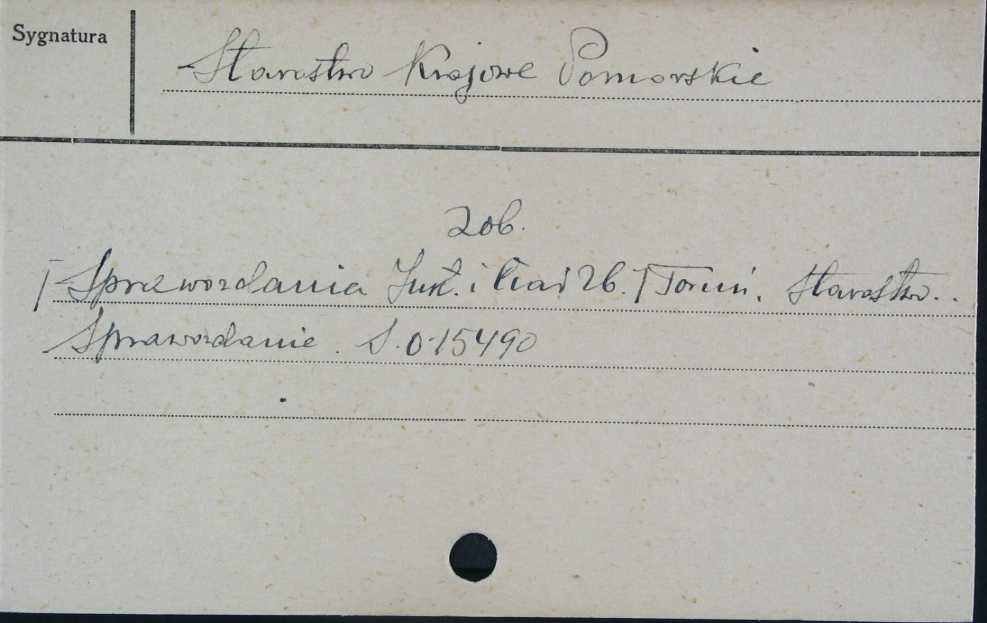 Sygnatura
Starostwo Krajowe Pomorskie
Zob.
[Sprawozdania Inst. i Tow. Zb.] Toruń. Starostwo..
Sprawozdanie. S.0.15490